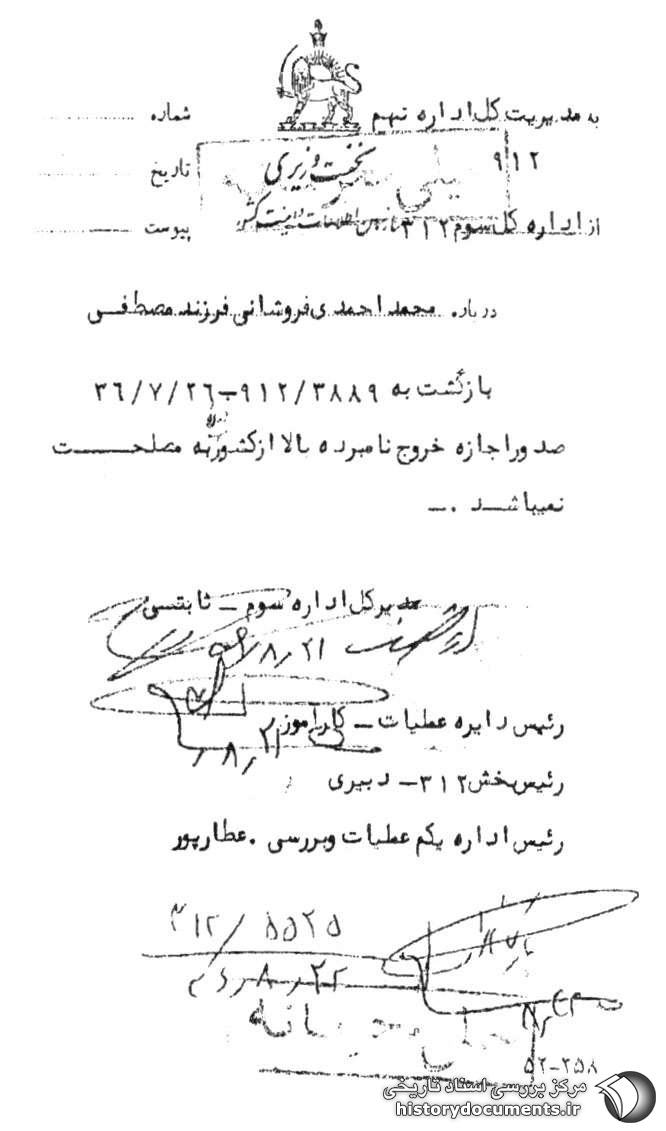 به مدیریت کل اداره نهم
شماره
۹۱۲
نخست وزیری
تاریخ
خیلی محرمانه
از اداره کل سوم ۳۱۲
سازمان اطلاعات و امنیت کشور
پیوست
درباره محمد احمدی فروشانی فرزند مصطفی
بازگشت به ۹۱۲/۳۸۸۹-۳۶/۷/۲۶
صدور اجازه خروج نامبرده بالا از کشور به مصلحت
نمیباشد .-
مدیر کل اداره سوم - ثابتی
۸٫۲۱
رئیس دایره عملیات - کارآموز
۸٫۲۱
رئیس بخش ۳۱۲ - دبیری
رئیس اداره یکم عملیات و بررسی . عطارپور
۳۱۲/۵۵۲۵
۳۶٫۸٫۲۲
خیلی محرمانه
۵۲-۲۵۸
مرکز بررسی اسناد تاریخی
historydocuments.ir